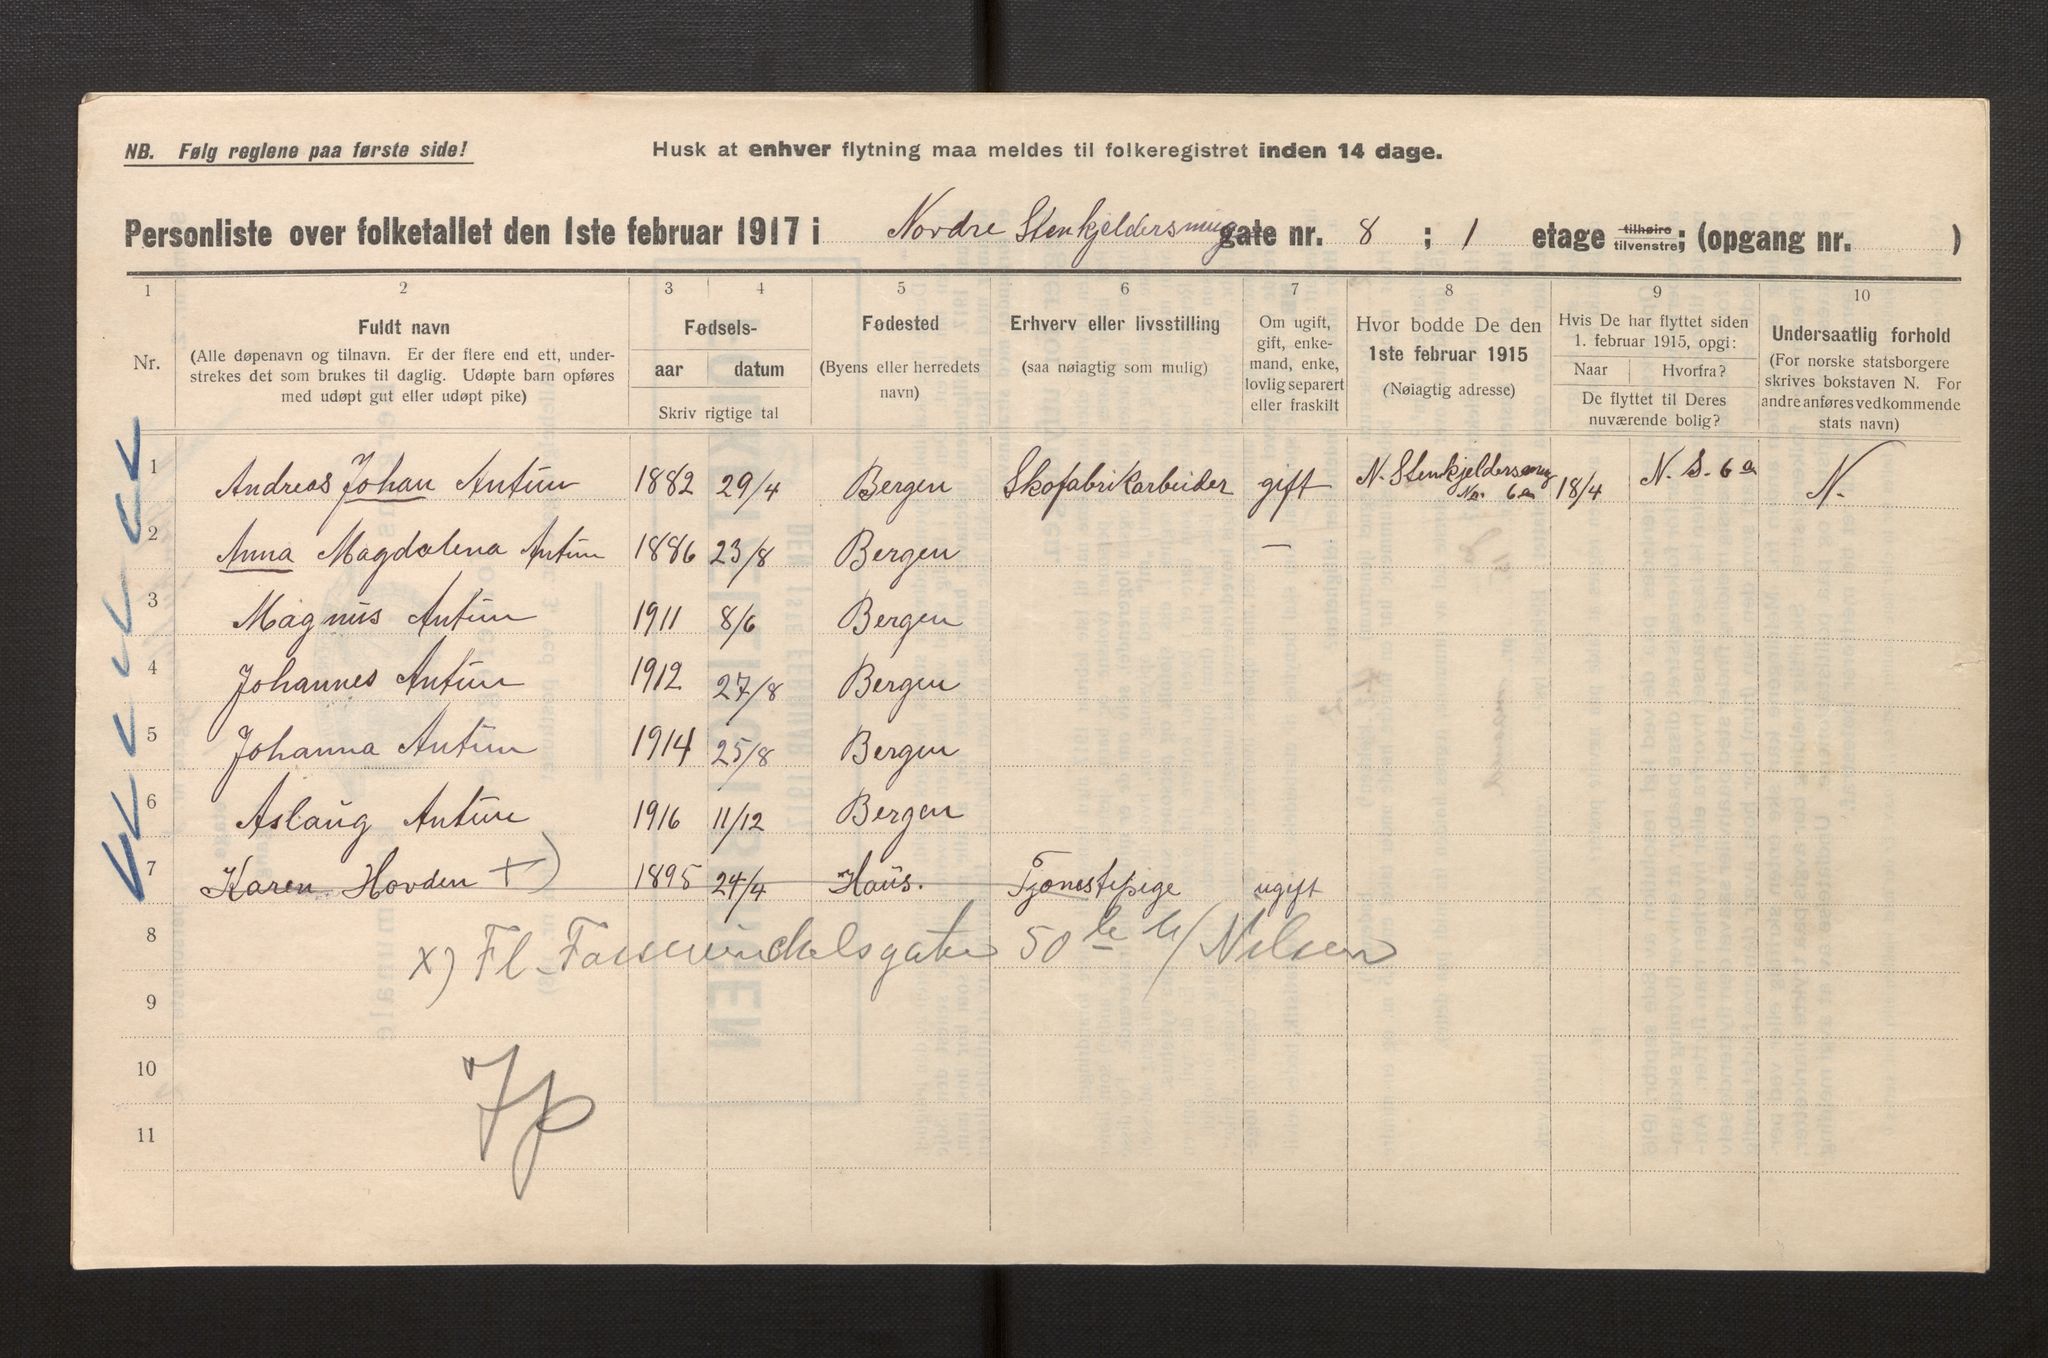 NB. Følg reglene paa første side!
Husk at enhver flytning maa meldes til folkeregistret inden 14 dage.
Personliste over folketallet den 1ste februar 1917 i Nordre Stenkjeldersmug gate nr. 8 ; 1 etage tilhøire tilvenstre; (opgang nr. )
1 2 3 4 5 6 7 8 9 10
Nr.
Fuldt navn
(Alle døpenavn og tilnavn. Er der flere end ett, under-
strekes det som brukes til daglig. Udøpte barn opføres
med udøpt gut eller udøpt pike)
Fødsels-
aar datum
Skriv rigtige tal
Fødested
(Byens eller herredets
navn)
Erhverv eller livsstilling
(saa nøiagtig som mulig)
Om ugift,
gift, enke-
mand, enke,
lovlig separert
eller fraskilt
Hvor bodde De den
1ste februar 1915
(Nøiagtig adresse)
Hvis De har flyttet siden
1. februar 1915, opgi:
Naar Hvorfra?
De flyttet til Deres
nuværende bolig?
Undersaatlig forhold
(For norske statsborgere
skrives bokstaven N. For
andre anføres vedkommende
stats navn)
1 Andreas Johan Antun 1882 29/4 Bergen Skofabrikarbeider gift N. Stenkjeldersmug No. 6a 18/4 N. S. 6a N.
2 Anna Magdalena Antun 1886 23/8 Bergen —
3 Magnus Antun 1911 8/6 Bergen
4 Johannes Antun 1912 27/8 Bergen
5 Johanna Antun 1914 25/8 Bergen
6 Aslaug Antun 1916 11/12 Bergen
7 Karen Hovden +) 1895 24/4 Haus. Tjenestepige ugift
8 x) Fl. Fosswinckelsgaten 50 Nilsen
9
10
11
7p